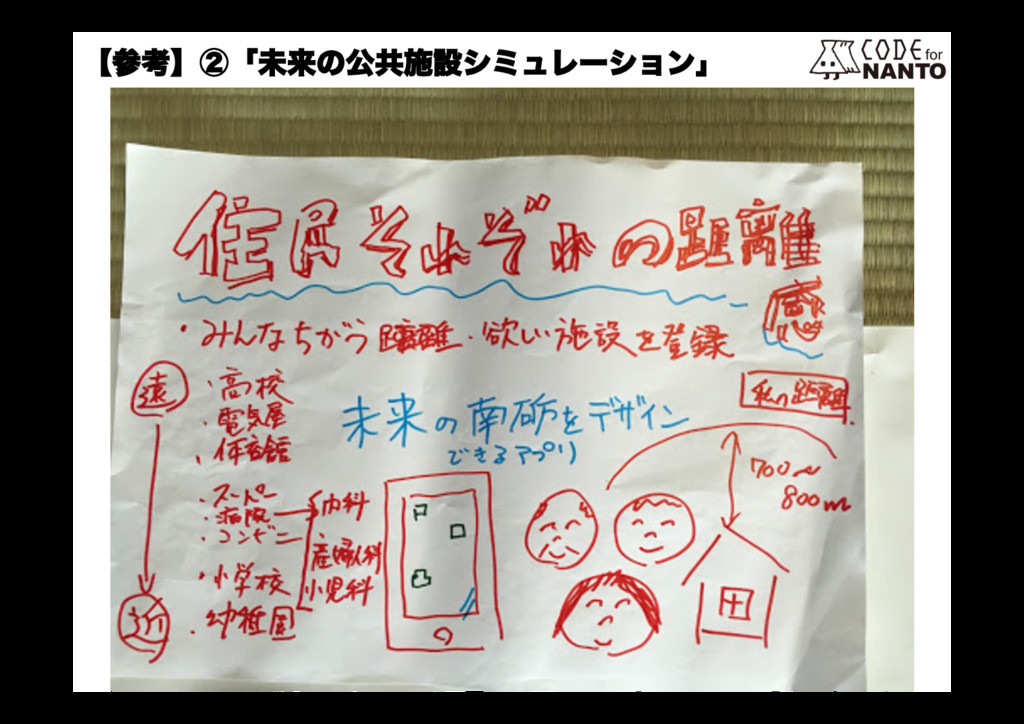 【参考】②「未来の公共施設シミュレーション」
CODE for
NANTO
住民それぞれの距離
感
・みんなちがう距離・欲しい施設を登録
遠
・高校
・電気屋
・体育館
・スーパー
・病院
・コンビニ
・小学校
・幼稚園
近
内科
産婦人科
小児科
未来の南砺をデザイン
できるアプリ
私の距離
700〜
800m